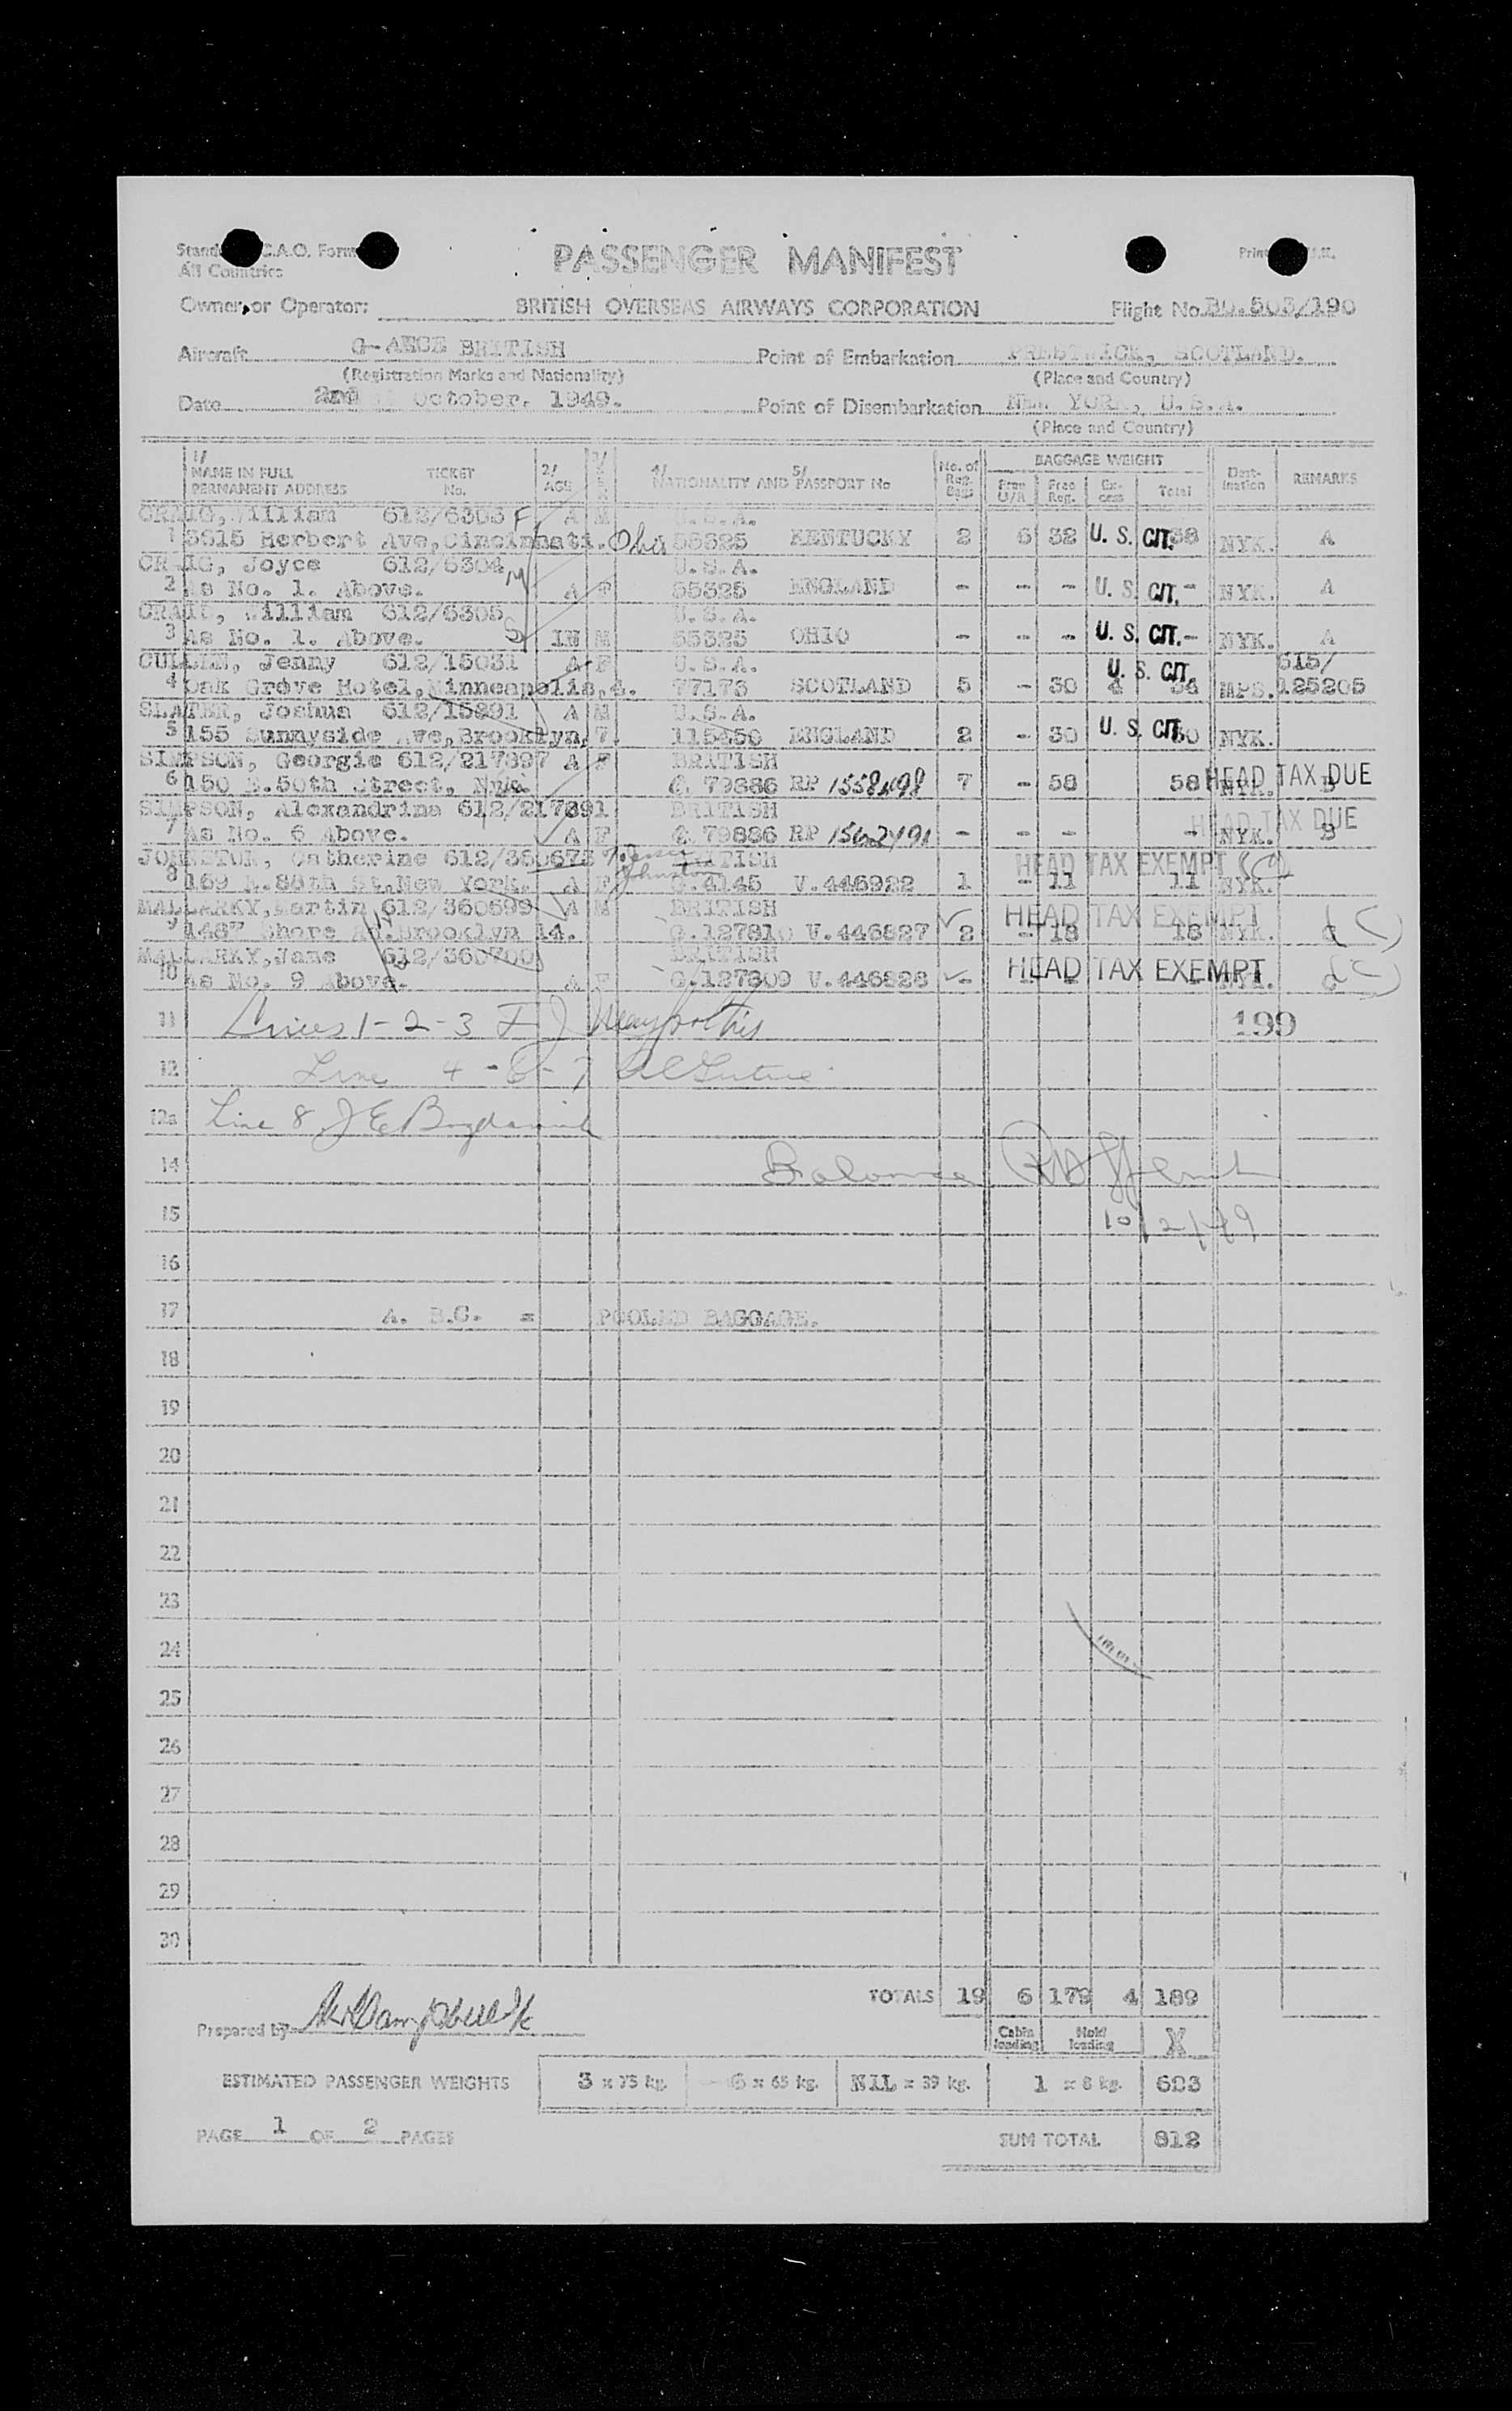 PASSENGER MANIFEST
All Countries
Owner or Operator: BRITISH OVERSEAS AIRWAYS CORPORATION Flight No. BO.503/190
Aircraft BRITISH Point of Embarkation PRESTWICK, SCOTLAND.
(Registration Marks and Nationality) (Place and Country)
Date 2nd October, 1949. Point of Disembarkation NEW YORK, U.S.A.
(Place and Country)
1/ NAME IN FULL PERMANENT ADDRESS TICKET No. 2/ AGE 3/ SEX 4/ NATIONALITY AND 5/ PASSPORT No No. of Reg. Bags BAGGAGE WEIGHT Free U/R Free Reg. Excess Total Destination REMARKS
CRAIG, William 612/6303 F A M U.S.A.
1 3615 Herbert Ave, Cincinnati. Ohio 55325 KENTUCKY 2 6 32 U. S. CIT. 38 NYK. A
CRAIG, Joyce 612/6304 M U.S.A.
2 As No. 1. Above. A F 55325 ENGLAND - - - U. S. CIT. - NYK. A
CRAIG, William 612/6305 U.S.A.
3 As No. 1. Above. S IN M 55325 OHIO - - - U. S. CIT. - NYK. A
CULLEN, Jenny 612/15031 A F U.S.A. U. S. CIT. 615/
4 Oak Grove Hotel, Minneapolis, 4. 77173 SCOTLAND 5 - 30 4 34 MPS. 125205
SLATER, Joshua 612/15291 A M U.S.A.
5 155 Sunnyside Ave, Brooklyn, 7. 115450 ENGLAND 2 - 30 U. S. CIT. 30 NYK.
SIMPSON, Georgie 612/217897 A F BRITISH
6 150 E.50th Street, NYC. C. 79886 RP 1558498 7 - 58 58 NYK. B HEAD TAX DUE
SIMPSON, Alexandrina 612/217891 BRITISH HEAD TAX DUE
7 As No. 6 Above. A F C. 79886 RP 1562491 - - - - NYK. B
JOHNSTON, Catherine 612/360678 BRITISH HEAD TAX EXEMPT (C)
8 169 E.88th St. New York. A F Johnston C.4145 V.446922 1 - 11 11 NYK.
MALLARKY, Martin 612/360699 A M BRITISH HEAD TAX EXEMPT (C)
9 148" Shore Rd. Brooklyn 14. C.127810 V.446827 2 - 18 18 NYK. C
MALLARKY, Jane 612/360700 BRITISH HEAD TAX EXEMPT (C)
10 As No. 9 Above. A F C.127809 V.446828 - NYK. C
11 Lines 1-2-3 199
12 Line 4-6-7
12a Line 8 J E
14 Balance
15 10/2/49
16
17 A. B.C. = POOLED BAGGAGE.
18
19
20
21
22
23
24
25
26
27
28
29
30
TOTALS 19 6 179 4 189
Prepared by
Cabin loading Hold loading X
ESTIMATED PASSENGER WEIGHTS 3 x 75 kg. 6 x 65 kg. NIL x 39 kg. 1 x 8 kg. 623
PAGE 1 OF 2 PAGES SUM TOTAL 812